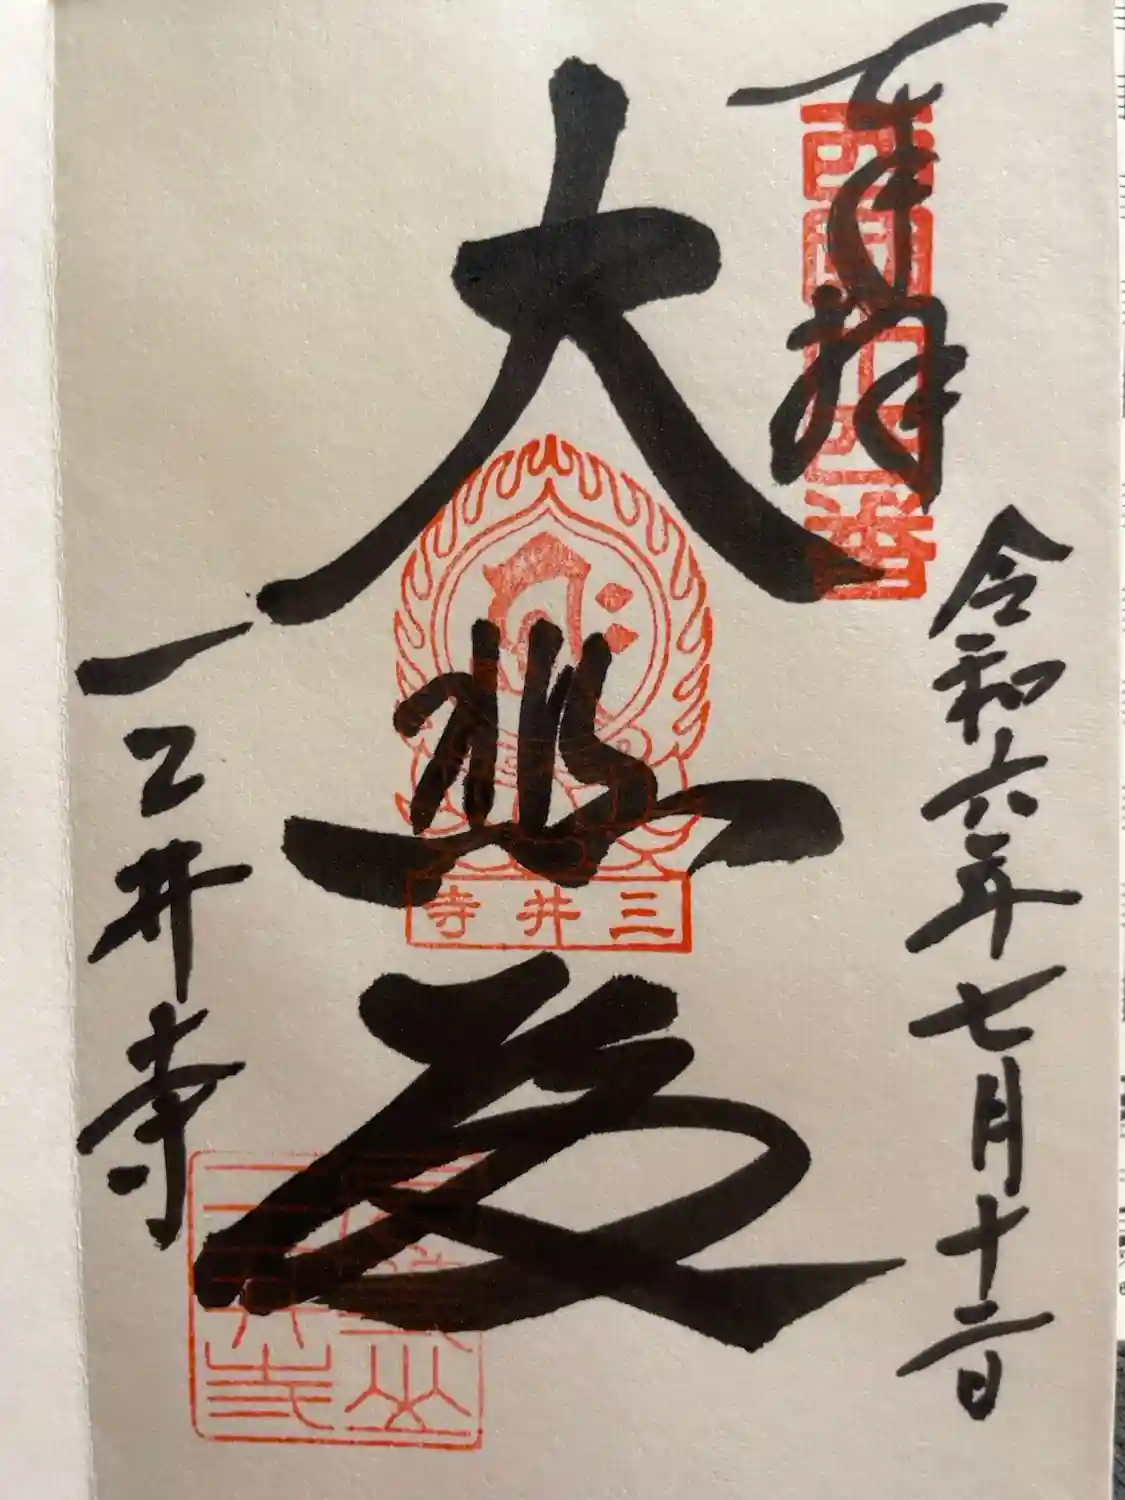 奉拝
西国十四番
令和六年七月十二日
大悲殿
三井寺
三井寺